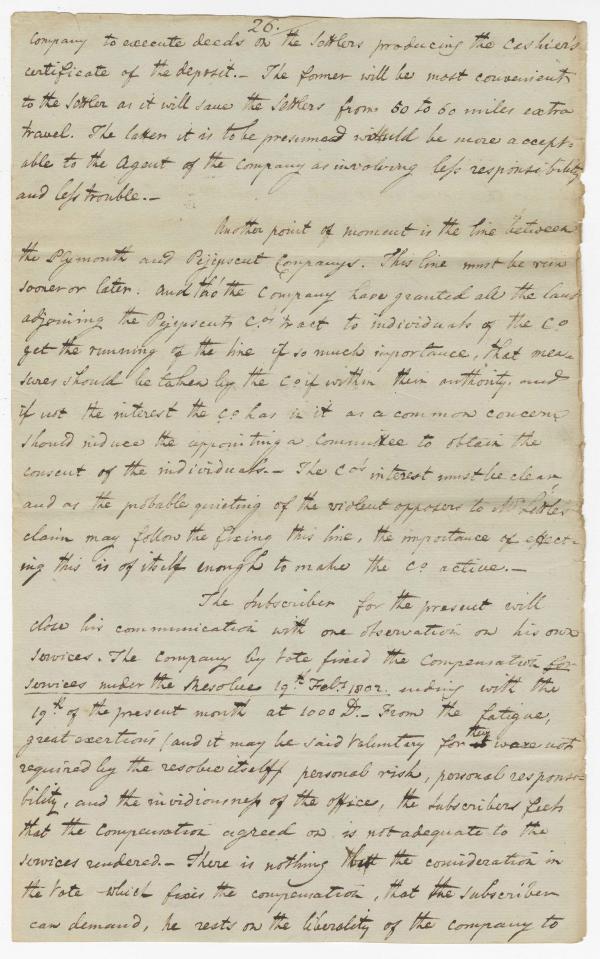 26.
Company to execute deeds on the Settlers producing the Cashier's
certificate of the deposit.- The former will be most convenient
to the Settler as it will save the Settlers from 50 to 60 miles extra
travel. The latter it is to be presumed would be more accept-
able to the Agent of the Company as involving less responsibility
and less trouble.-
Another point of moment is the line between
the Plymouth and Pejepscut Companys. This line must be run
sooner or later. And tho' the Company have granted all the land
adjoining the Pejepscuts Co's tract to individuals of the Co
yet the running of the line if so much importance, that mea-
sures should be taken by the Co if within their authority. and
if not the interest the Co has in it as a common concern
should induce the appointing a Committee to obtain the
consent of the individuals.- The Co's interest must be clear,
and as the probable quieting of the violent opposers to Mr
claim may follow the fixing this line, the importance of effect-
ing this is of itself enough to make the Co active.-
The Subscriber for the present will
close his communication with one observation on his own
services. The Company by vote fixed the Compensation for
services under the Resolve 19th Feby 1802. ending with the
19th of the present month at 1000 D.- From the fatigue,
great exertions (and it may be said voluntary for they were not
required by the resolve itself) personal risk, personal responsi-
bility, and the invidiousness of the office, the Subscribers feels
that the Compensation agreed on is not adequate to the
services rendered.- There is nothing but the consideration in
the vote which fixes the compensation, that the subscriber
can demand, he rests on the liberality of the company to